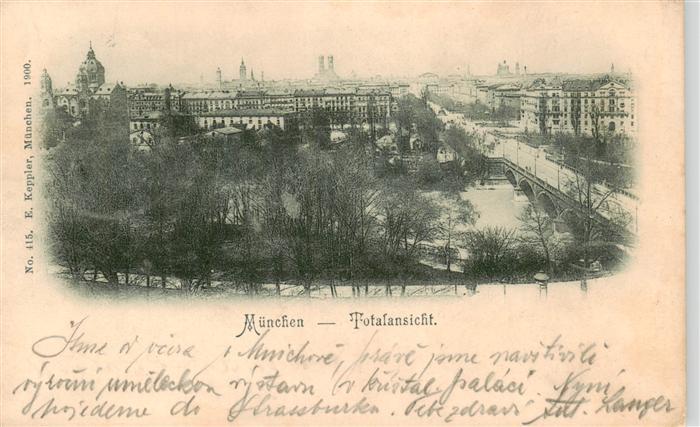 No. 415. E. Keppler, München. 1900.
München — Totalansicht.
Jsme v v Mnichově, právě jsme navštívili
výroční uměleckou výstavu v křištal. paláci. Nyní
pojedeme do Strassburku. Tebe zdraví Ant. Langer